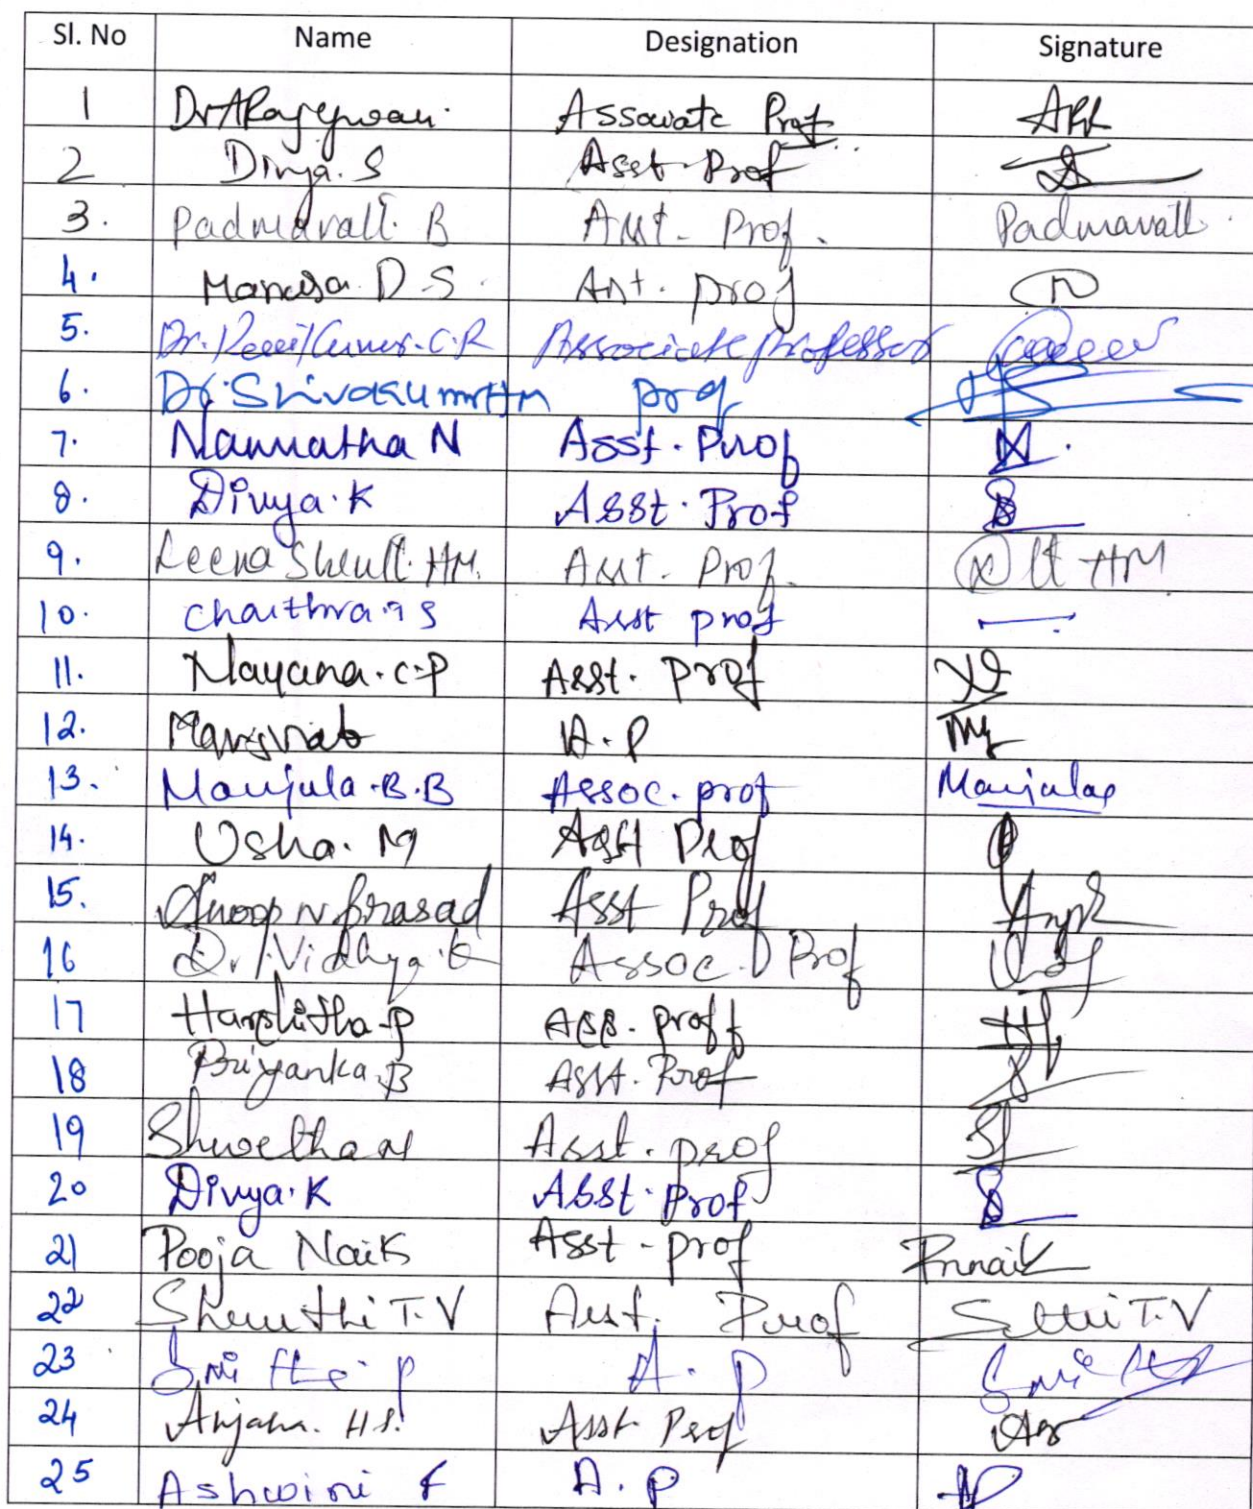 Sl. No Name Designation Signature
1 Dr A Rajeshwari Associate Prof
2 Divya. S Asst. Prof
3. Padmavati. B Asst. Prof. Padmavati
4. Manasa. D.S. Asst. prof
5. Dr. Ravi Kumar. C.R Associate professor
6. Dr. Shivakumar HM prof
7. Namratha N Asst. Prof
8. Divya. K Asst. Prof
9. Leena Shruti. HM. Asst. Prof. HM
10. Chaithra S Asst prof
11. Nayana. C.P Asst. Prof
12. A. P
13. Manjula. B. B Assoc. prof Manjula
14. Usha. M Asst Prof
15. Anoop N Prasad Asst Prof
16 Dr. Vidhya. K Assoc. Prof
17 Harshitha. P Ass. proff
18 Priyanka. B Asst. Prof
19 Shwetha Asst. prof
20 Divya. K Asst. Prof
21 Pooja Naik Asst. prof Pnnaik
22 Shruthi T. V Asst. Prof T. V
23 Smitha. P A. P
24 Anjana. H S. Asst Prof
25 Ashwini A. P